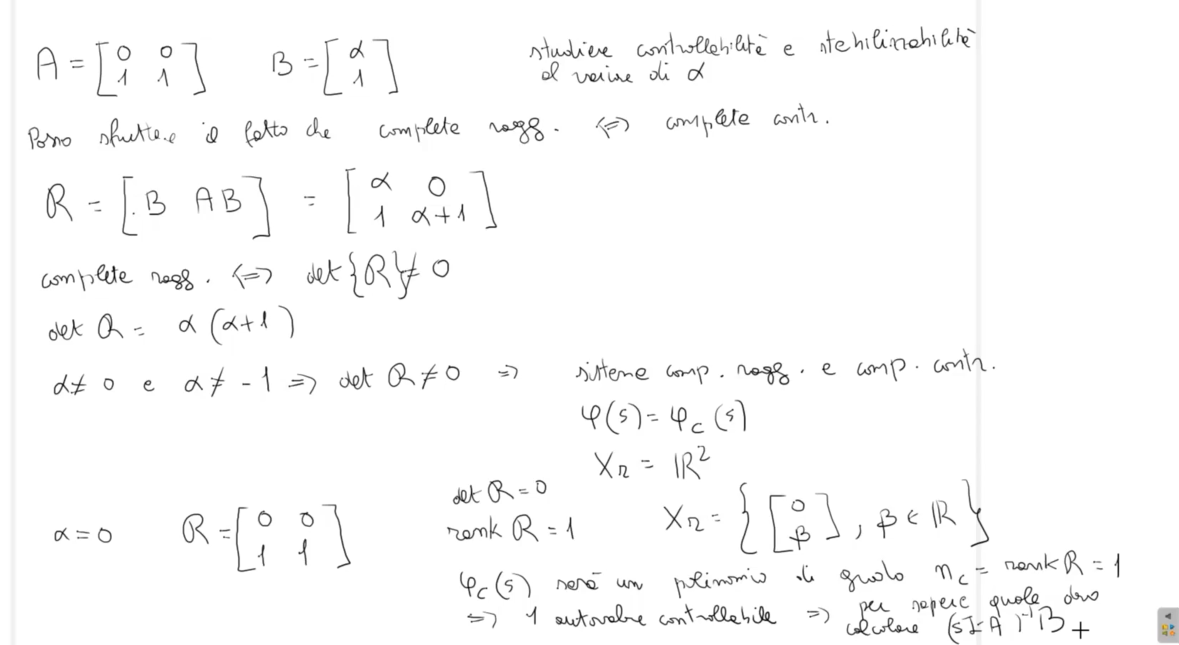 A = [0 0; 1 1] B = [α; 1] studiare controllabilità e stabilizzabilità
al variare di α
Posso sfruttare il fatto che completa ragg. ⇔ completa contr.
R = [B AB] = [α 0; 1 α+1]
completa ragg. ⇔ det{R} ≠ 0
det R = α(α+1)
α ≠ 0 e α ≠ -1 ⇒ det R ≠ 0 ⇒ sistema comp. ragg. e comp. contr.
φ(s) = φc(s)
XR = ℝ²
α = 0 R = [0 0; 1 1] det R = 0
rank R = 1 XR = {[0; β], β ∈ ℝ}
φc(s) sarà un polinomio di grado nc = rank R = 1
⇒ 1 autovalore controllabile ⇒ per sapere quale devo
calcolare (sI-A)⁻¹B +